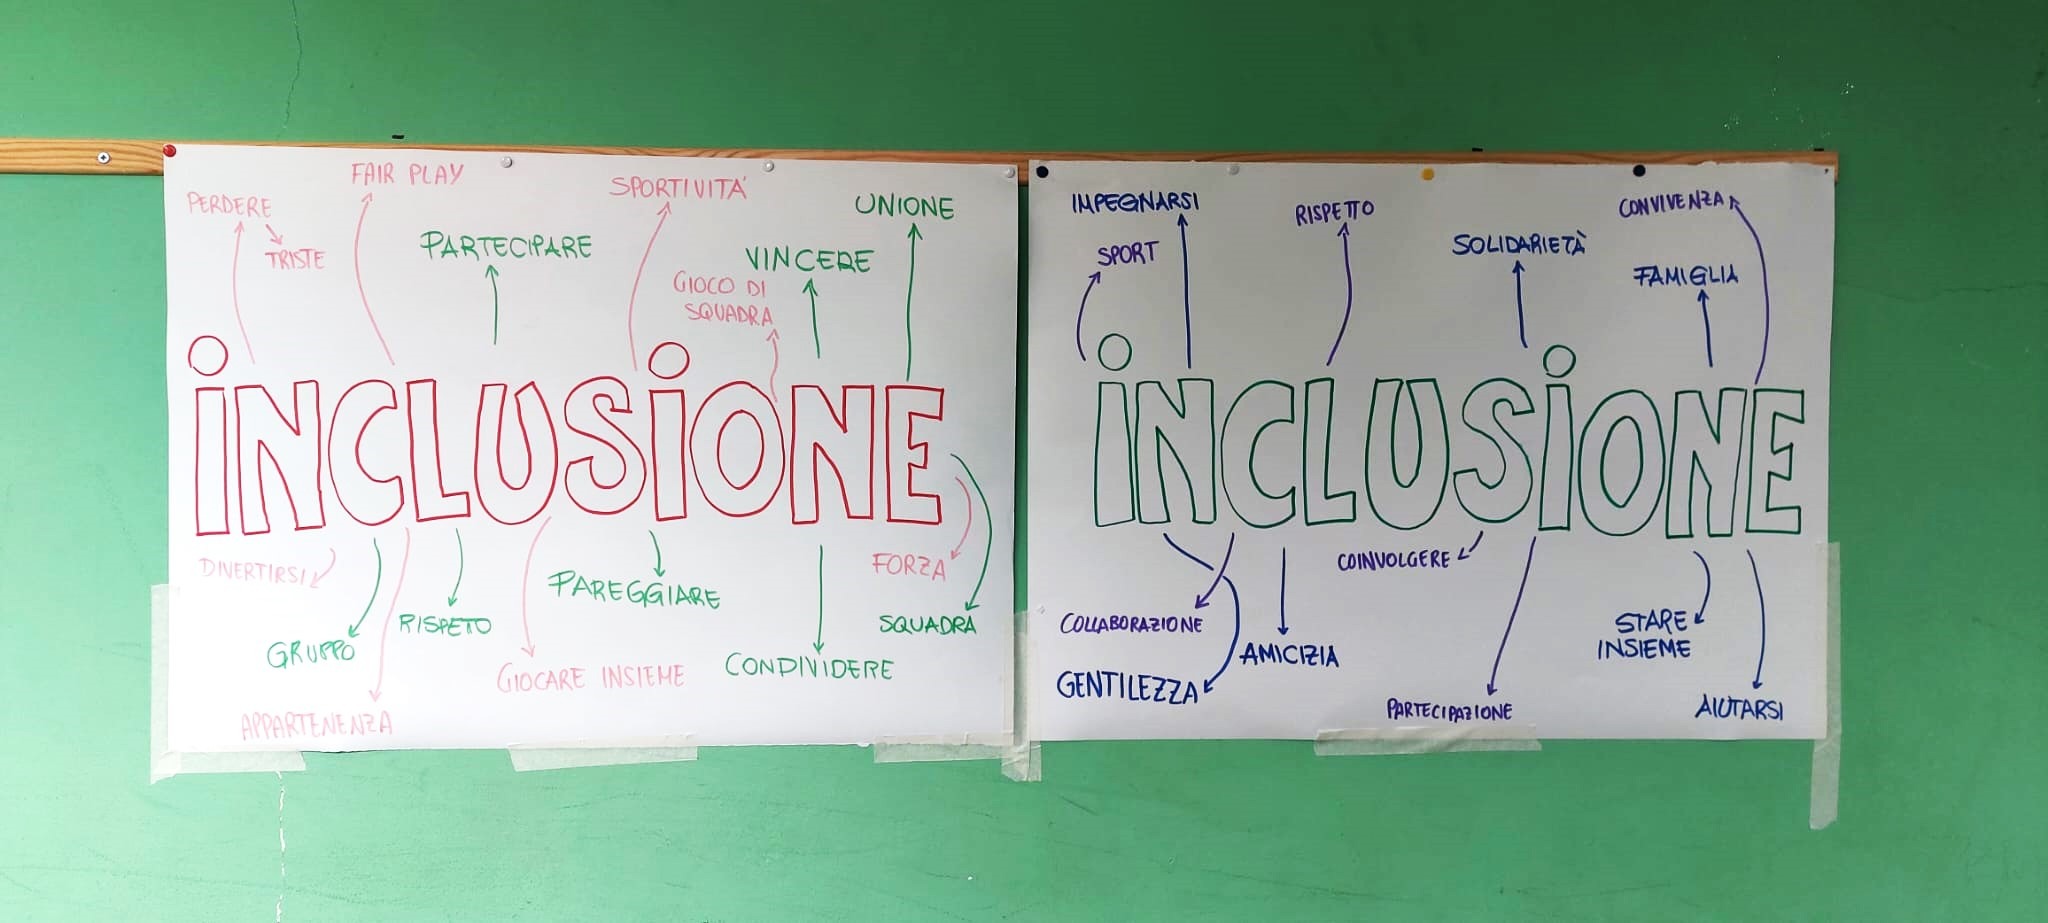 FAIR PLAY
PERDERE
TRISTE
PARTECIPARE
SPORTIVITÀ
GIOCO DI
SQUADRA
VINCERE
UNIONE
iNCLUSiONE
DIVERTIRSI
GRUPPO
APPARTENENZA
RISPETO
GIOCARE INSIEME
PAREGGIARE
CONDIVIDERE
FORZA
SQUADRA
IMPEGNARSI
SPORT
RISPETTO
SOLIDARIETÀ
CONVIVENZA
FAMIGLIA
iNCLUSiONE
COLLABORAZIONE
GENTILEZZA
AMICIZIA
COINVOLGERE
PARTECIPAZIONE
STARE
INSIEME
AIUTARSI